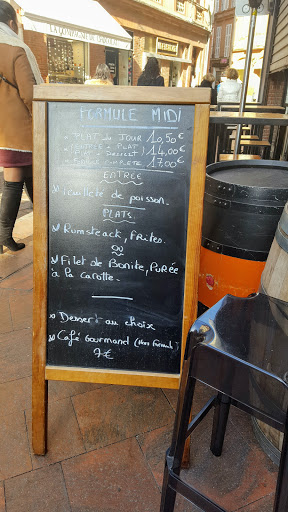 LA COMPAGNIE DE
FORMULE MIDI
- PLAT du JOUR 10,50€
- ENTRÉE + PLAT
- PLAT + DESSERT 14,00€
17,00€
ENTRÉE
Feuilleté de poisson.
PLATS.
Rumsteack, FRites.
ou
Filet de Bonite, PuRée
à la carotte.
Dessert au choix
Café Gourmand (Hors Formule)
7€